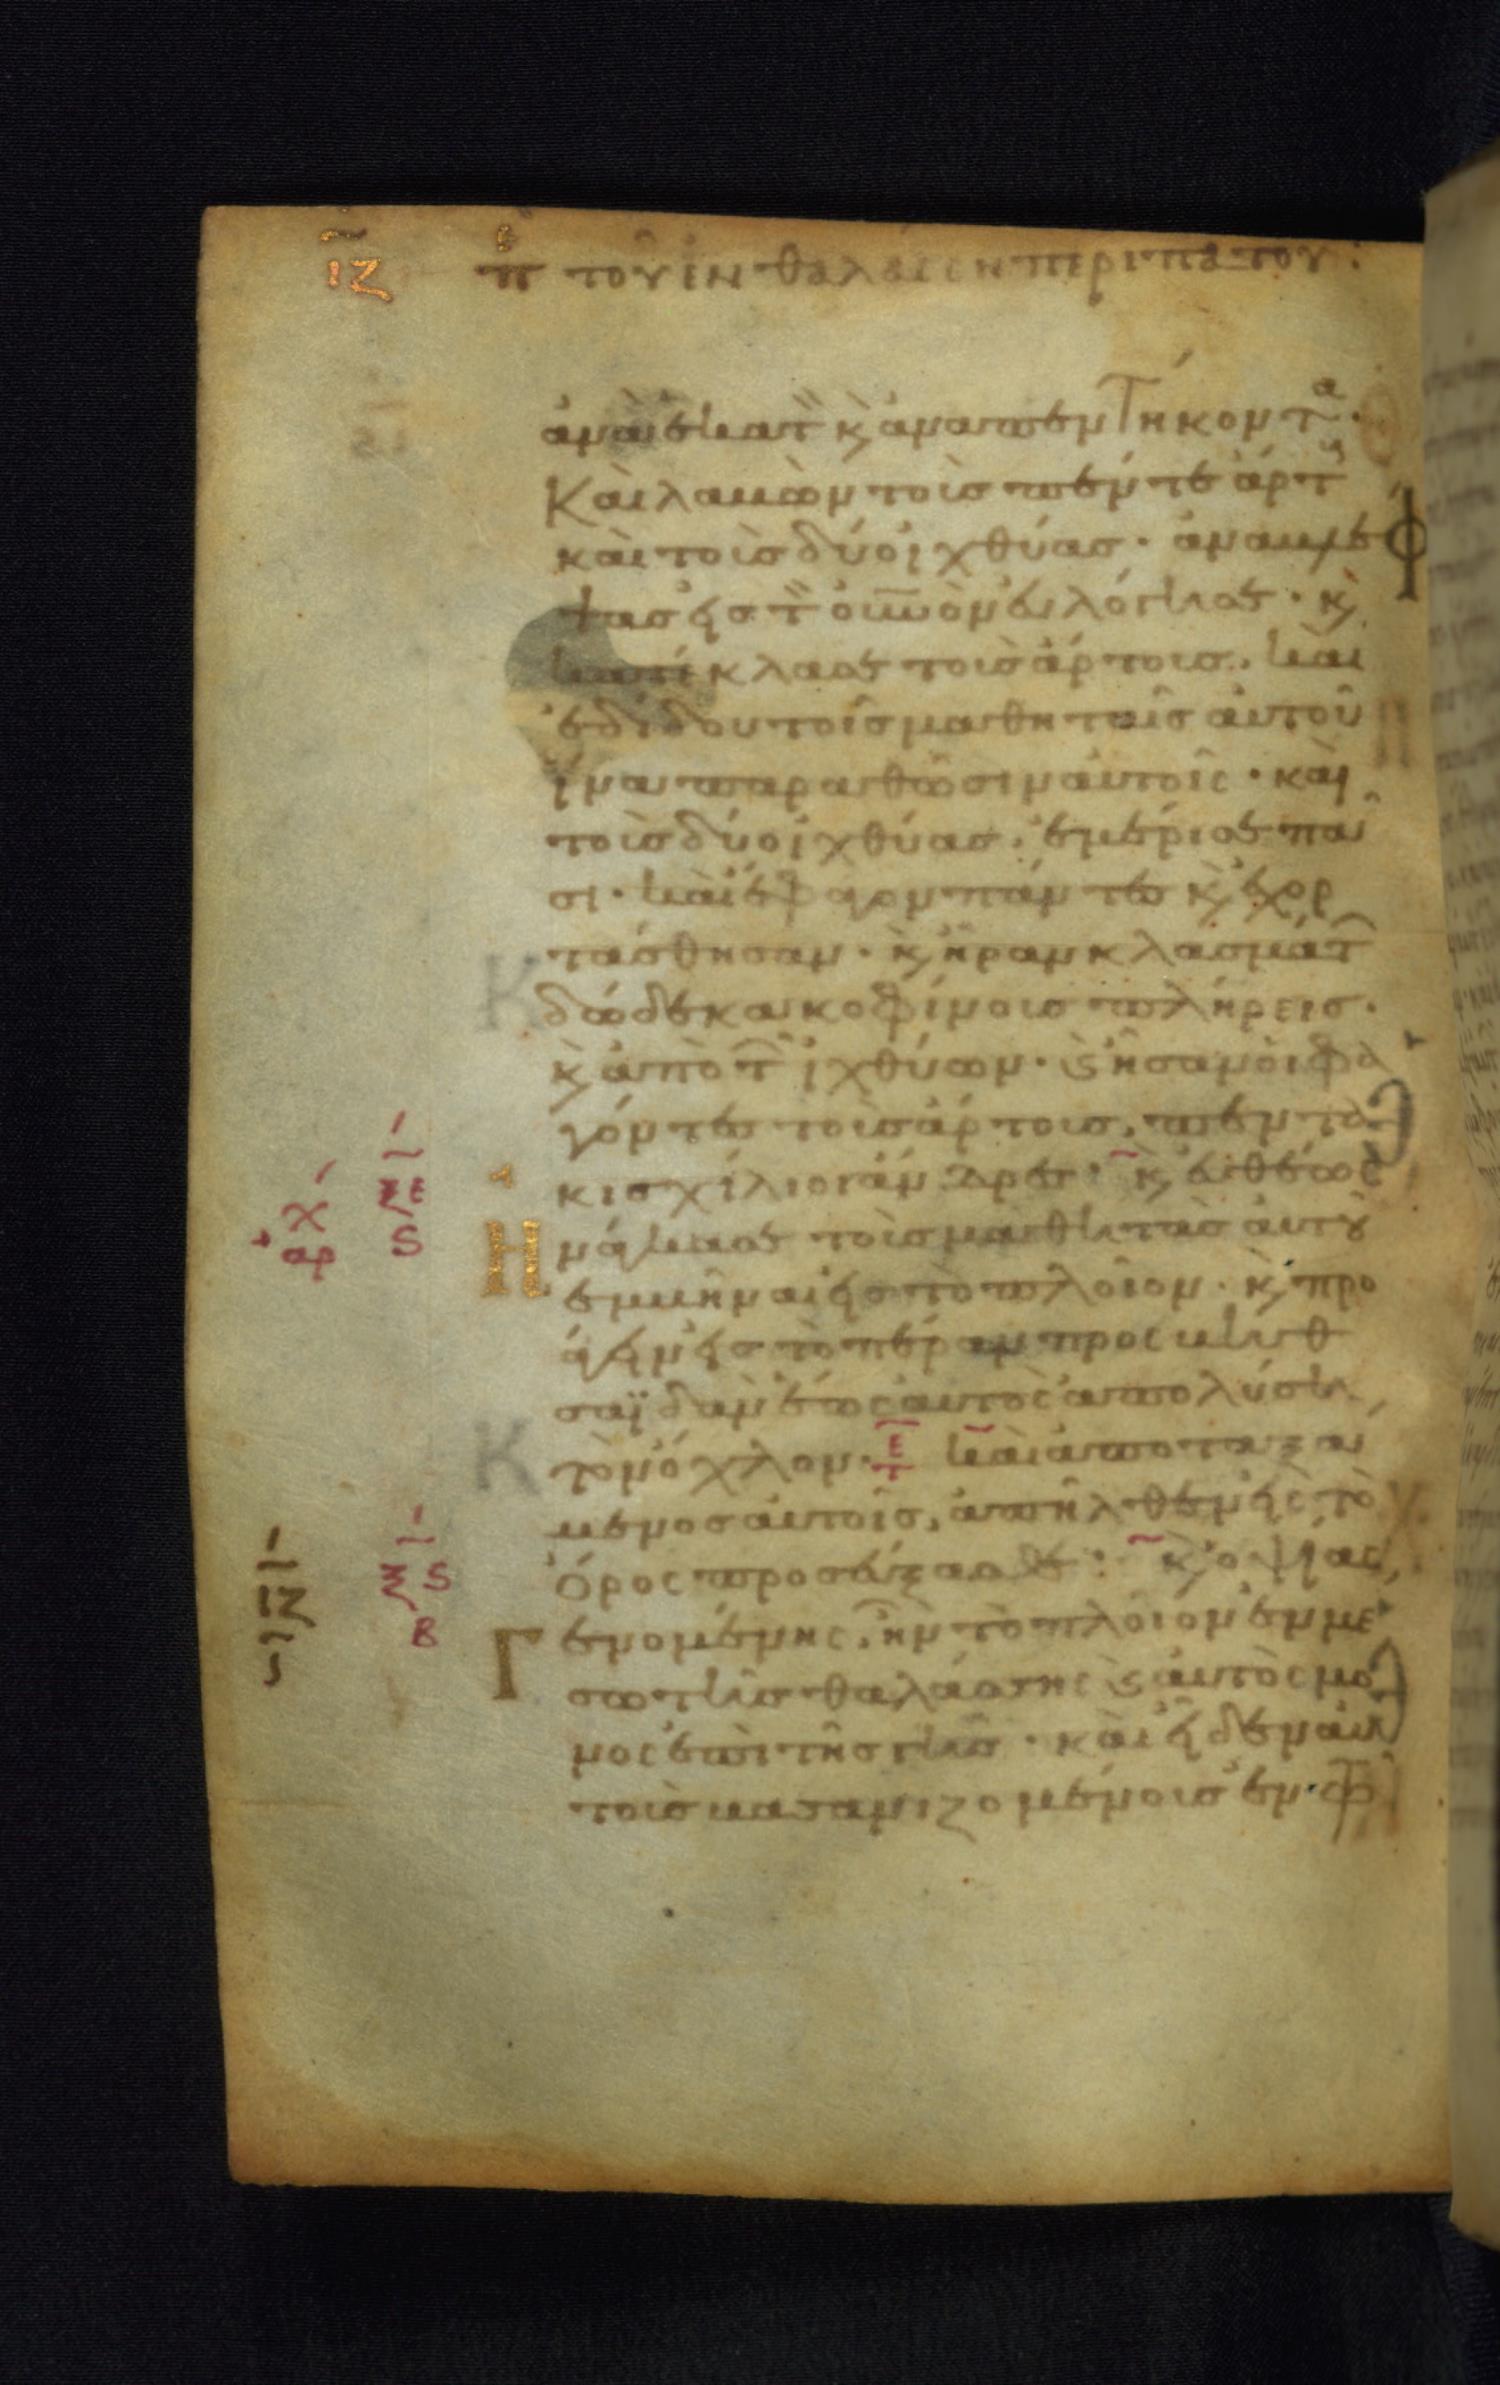 ιζ πε του εν θαλασση περιπατου:
ἀνὰ ἑκατ̀ κ̀ ἀνα πεντήκοντα·
Και λαβὼν τοὺς πέντε ἄρτ
καὶ τοὺς δύο ἰχθύας· ἀναβλέ
ψας εἰς τ̀ οὐνὸν εὐλόγησε· κ̀
κατέκλασε τοὺς ἄρτους, καὶ
ἐδίδου τοῖς μαθηταῖς αὐτοῦ
ἵνα παραθῶσιν αὐτοῖς· καὶ
τοὺς δύο ἰχθύας, ἐμέρισε πᾶ
σι· καὶ ἔφαγον πάντες κ̀ ἐχορ
τάσθησαν· κ̀ ἦραν κλασμάτ
δώδεκα κοφίνους πλήρεις·
κ̀ ἀπὸ τ ἰχθύων· κ̀ ἦσαν οἱ φα
γόντες τοὺς ἄρτους, πεντα
κισχίλιοι ἄνδρες· κ̀ εὐθέως
Η νάγκασε τοὺς μαθητὰς αὐτοῦ
ἐμβῆναι εἰς τὸ πλοῖον· κ̀ προ
άγειν εἰς τὸ πέραν προς βηθ
σαϊδὰν ἕως αὐτὸς ἀπολύσῃ
τὸν ὄχλον· ΤΕ καὶ ἀποταξά
μενος αὐτοῖς, ἀπῆλθεν εἰς τὸ
ὄρος προσεύξασθαι: κ̀ ὀψίας
Γ ενομένης, ἦν τὸ πλοῖον ἐν μέ
σω τῆς θαλάσσης κ̀ αὐτὸς μό
νος ἐπὶ τῆς γῆς· καὶ εἶδεν αὐ
τοὺς βασανιζομένους ἐν τῶ
χ
αρ
ξε
ς
ξς
β
ιζ